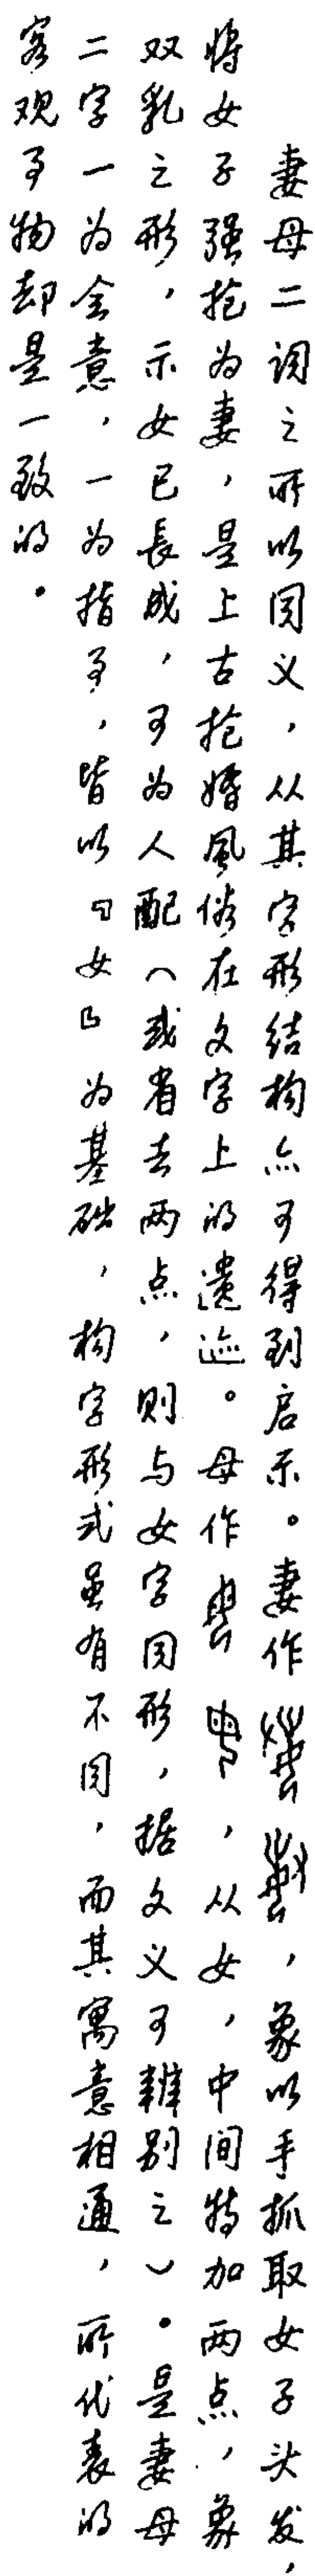 妻母二词之所以同义，从其字形结构亦可得到启示。妻作，象以手抓取女子头发，
将女子强抢为妻，是上古抢婚風俗在文字上的遗迹。母作，从女，中间特加两点，象
双乳之形，示女已長成，可为人配（或省去两点，则与女字同形，据文义可辨别之）。是妻母
二字一为会意，一为指事，皆以『女』为基础，构字形式虽有不同，而其寓意相通，所代表的
客观事物却是一致的。